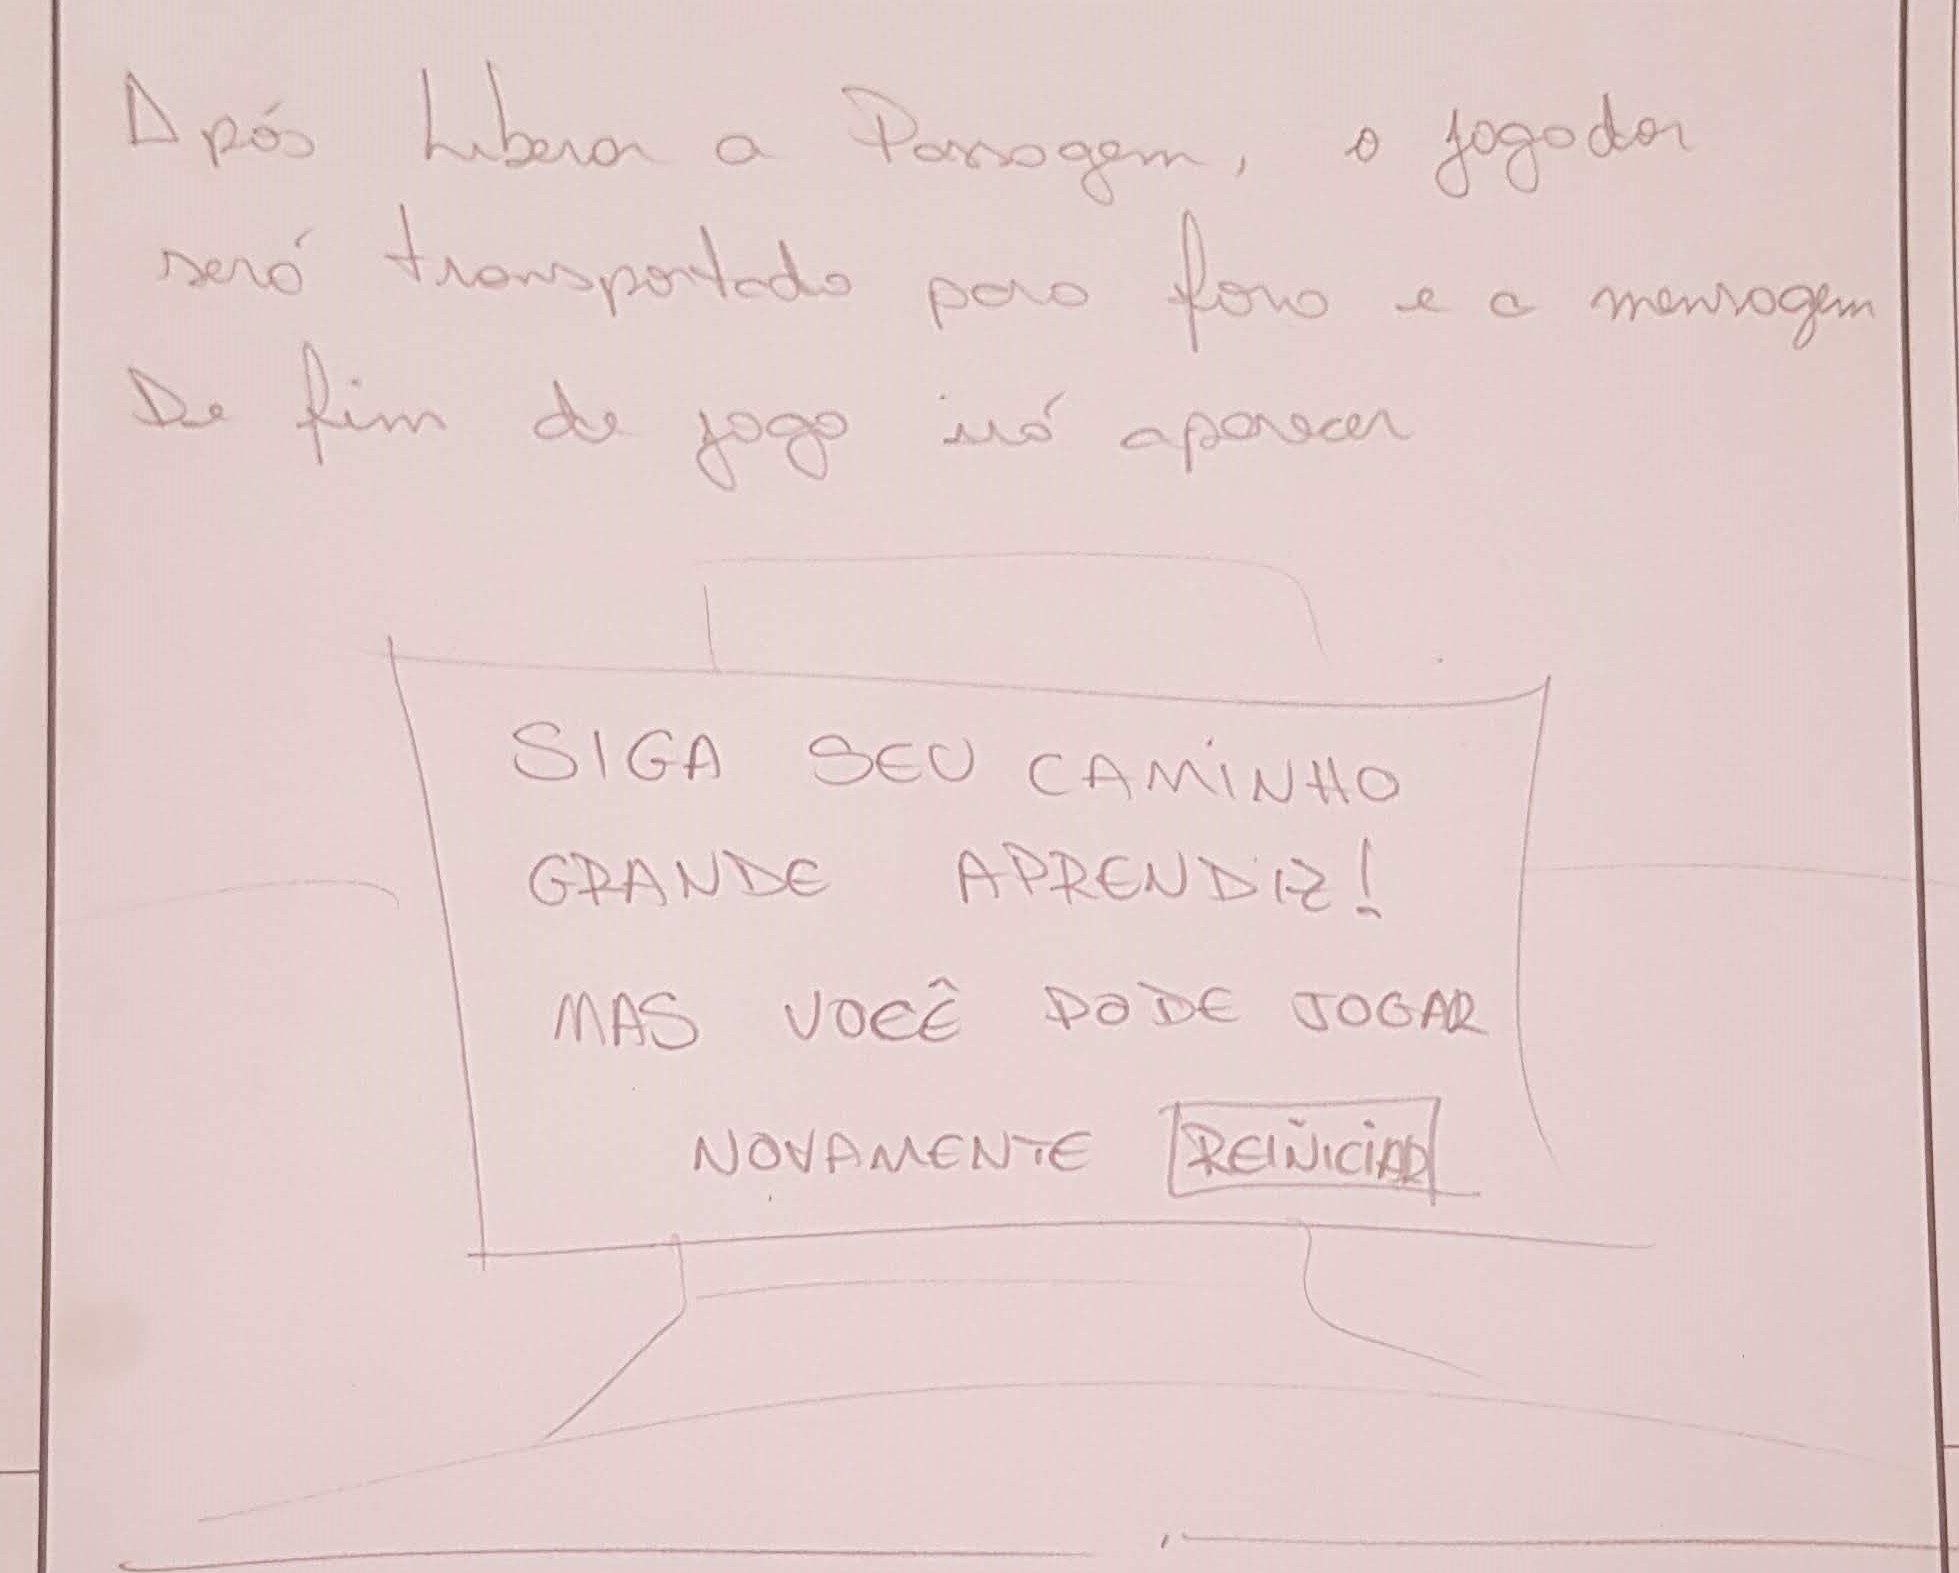 Após Liberar a Passagem, o jogador
será transportado para fora e a mensagem
De fim de jogo irá aparecer
SIGA SEU CAMINHO
GRANDE APRENDIZ!
MAS VOCÊ PODE JOGAR
NOVAMENTE REINICIAR